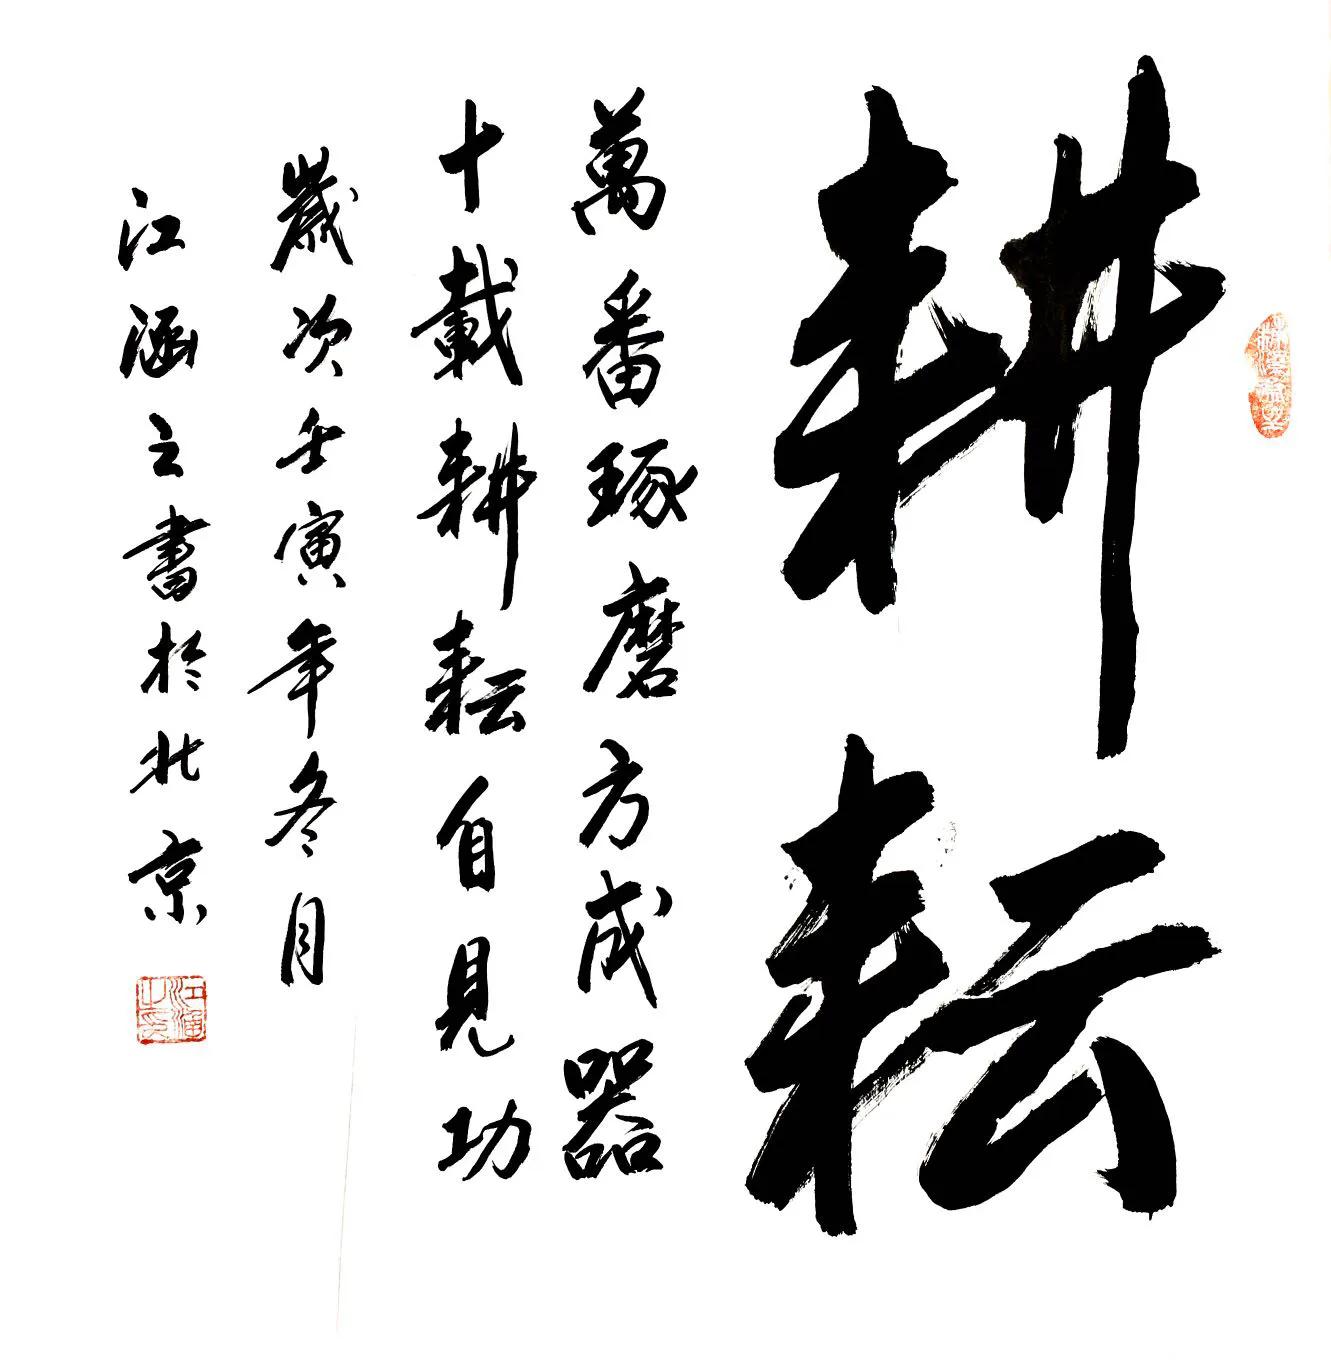 耕耘
萬番琢磨方成器
十載耕耘自見功
歲次壬寅年冬月
江涵之書於北京